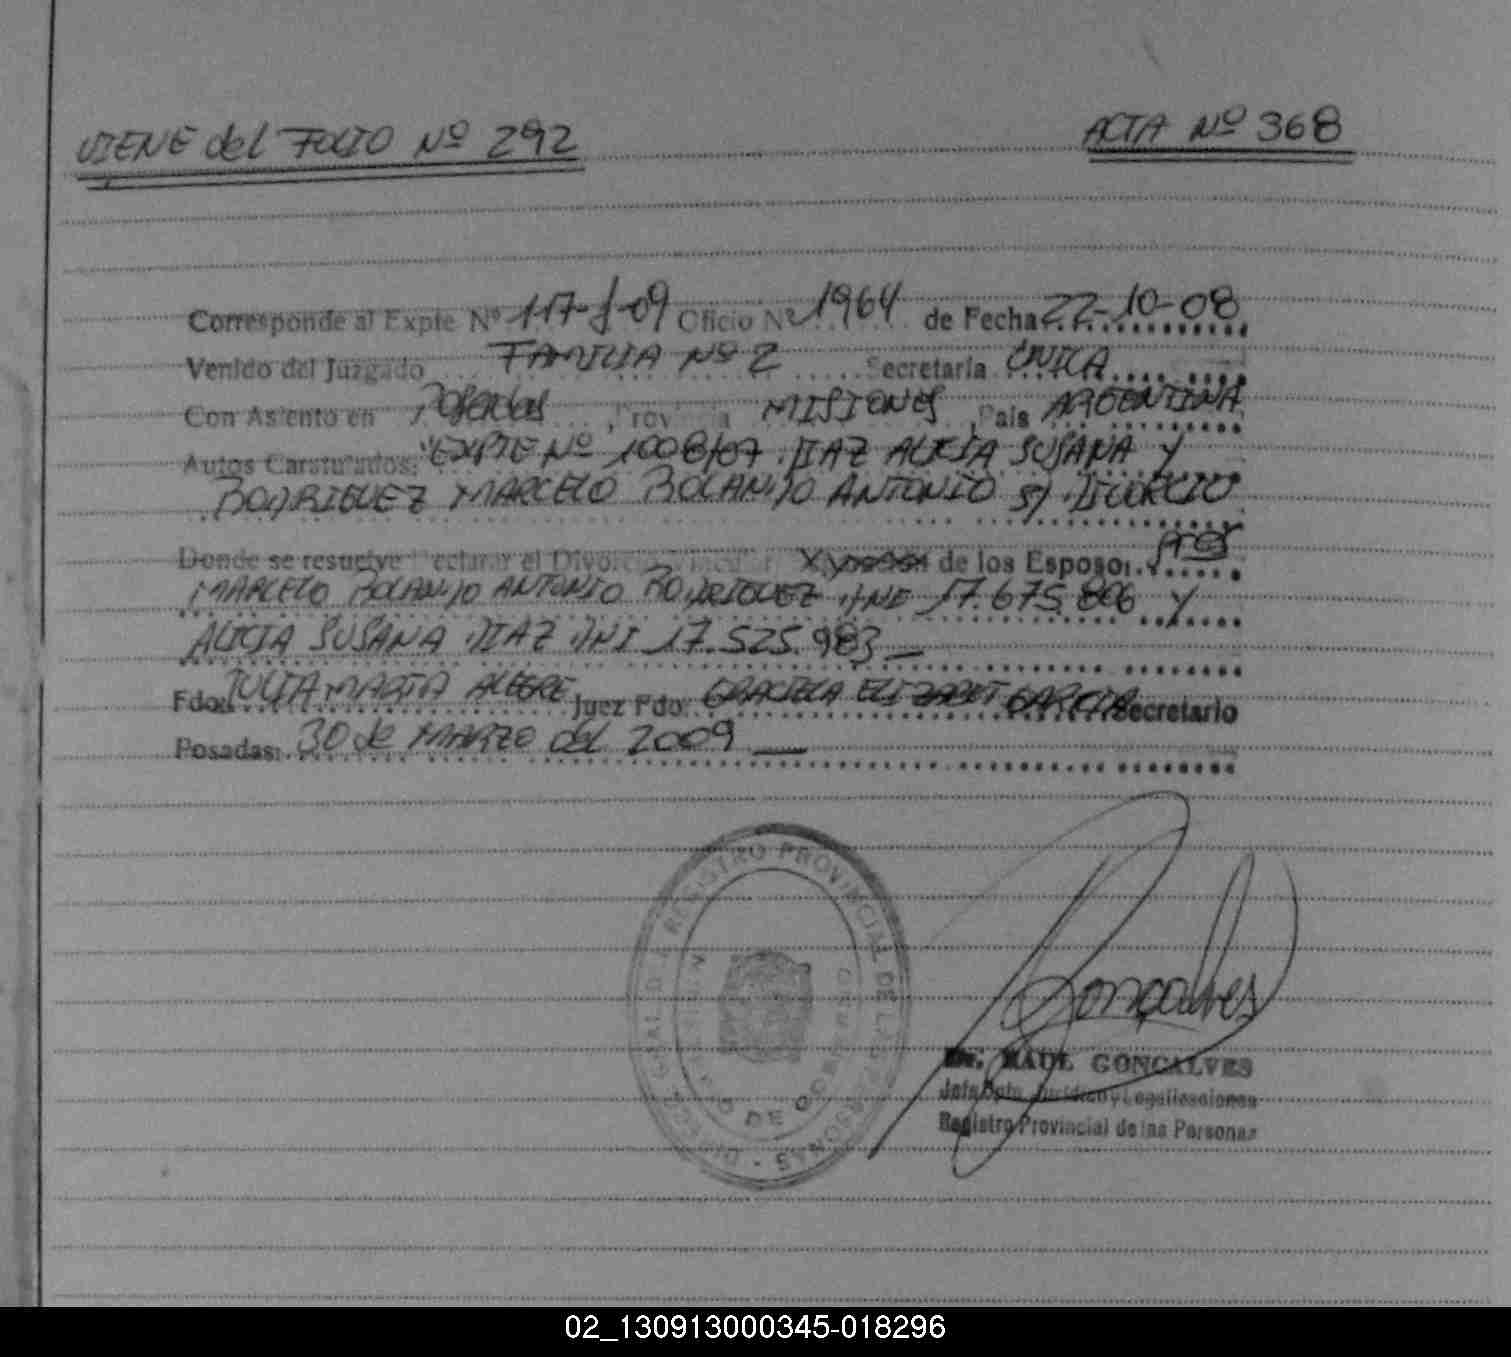 VIENE del FOLIO Nº 292
ACTA Nº 368
Corresponde al Expte Nº 117-J-09 Oficio Nº 1964 de Fecha 22-10-08
Venido del Juzgado FAMILIA Nº 2 Secretaria UNICA
Con Asiento en Posadas, Provincia MISIONES, Pais ARGENTINA
Autos Caratulados: "EXPTE Nº 1008/07 DIAZ ALICIA SUSANA Y
RODRIGUEZ MARCELO ROLANDO ANTONIO S/ DIVORCIO
Donde se resuelve Declarar el Divorcio Vincular de los Esposo: Sres
MARCELO ROLANDO ANTONIO RODRIGUEZ DNI 17.675.806 Y
ALICIA SUSANA DIAZ DNI 17.525.983
Fdo: JULIA MARIA ALEGRE Juez Fdo: GRACIELA ELIZABET GARCIA Secretario
Posadas: 30 de MARZO del 2009
REGISTRO PROVINCIAL DE LAS PERSONAS
Goncalves
Dr. RAUL GONCALVES
Jefe Dpto. Jurídico y Legalizaciones
Registro Provincial de las Personas
02_130913000345-018296